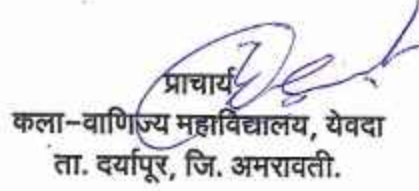 प्राचार्य
कला-वाणिज्य महाविद्यालय, येवदा
ता. दर्यापूर, जि. अमरावती.